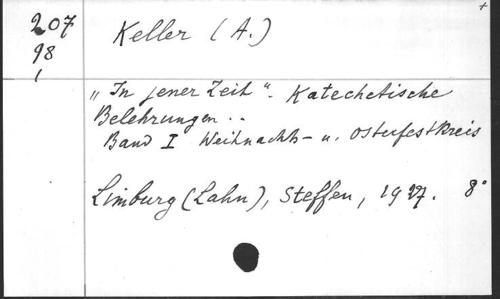 207
98
1
Keller (A.)
+
„In jener Zeit". Katechetische
Belehrungen..
Band I Weihnachts- u. Osterfestkreis
Limburg (Lahn), Steffen, 1927. 8°